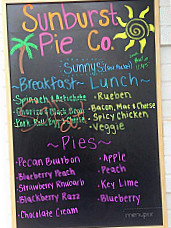 Sunburst
Pie Co.
Sunny's
~Breakfast~ Lunch~
• Spinach & Artichoke
• Rueben
• Bacon, Mac & Cheese
• Pork Roll, Egg & Cheese
• Spicy Chicken
• Veggie
~Pies~
• Pecan Bourbon
• Apple
• Blueberry Peach
• Peach
• Strawberry Rhubarb
• Key Lime
• Blackberry Razz
• Blueberry
• Chocolate Cream
menupix